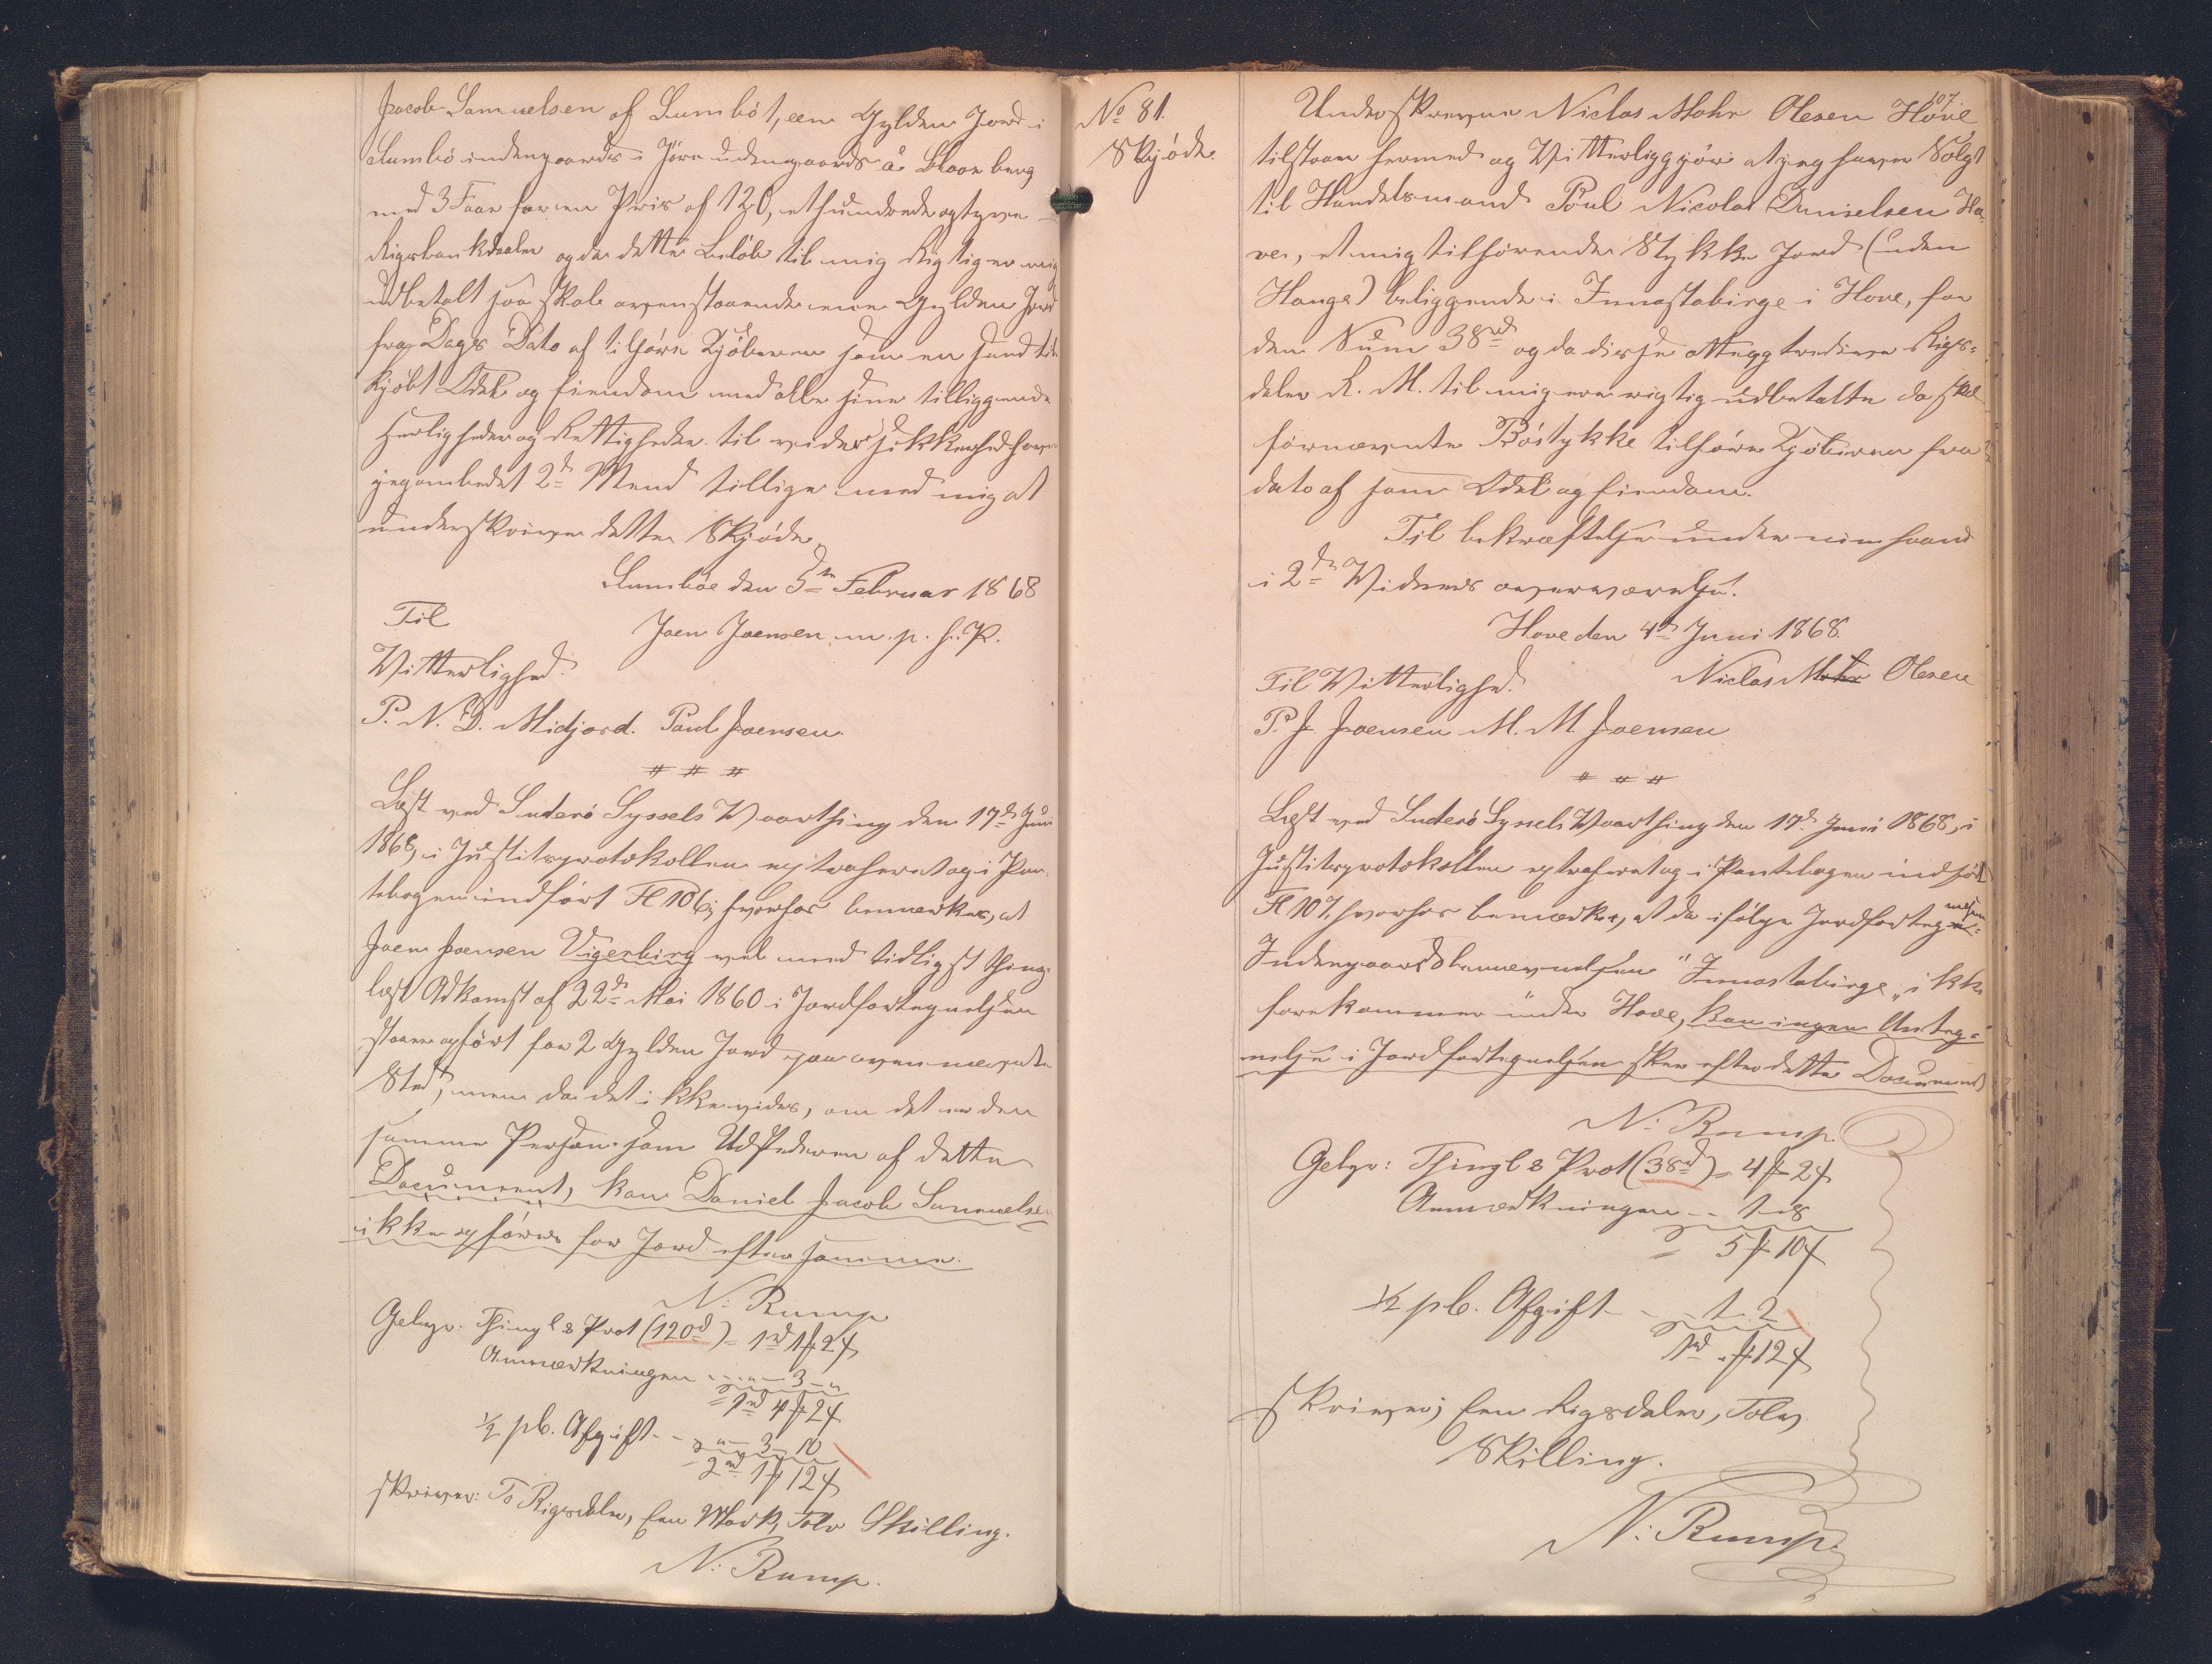 Jacob Samuelsen af Sumböt, een Gylden Jord i
Sumbö indengaards i Jöra udengaards a
med 3 Faar for en Pris af 120, ethundrede og tyve
Rigsbankdaler og da dette Belöb til mig Rigtig er mig
udbetalt saa skal ovenstaaende een Gylden Jord
fra Dags Dato af tilhøre Kjöberen som en sand til
Kjöbt Odel og Eiendom med alle sine tilliggende
Herligheder og Rettigheder. til vider sikkerhed haver
jeg ombedet 2de Mend tillige med mig at
underskrive dette Skjöde.
Sumböe den 5te Februar 1868
Til Joen Joensen m. p. h. P.
Vitterlighed.
P. N. D. Midjord. Paul Joensen.
# # #
Læst ved Suderö Syssels Vaarthing den 17de Juni
1868, i Justitsprotokollen extraheret og i Pan-
tebogen indført Fl 106; hvorhos bemærkes, at
Joen Joensen Vigerbirg vel med tidligst thing-
læst Adkomst af 22de Mai 1860 i Jordfortegnelsen
staaer opført for 2 Gylden Jord paa ovennævnte
Sted, men da det ikke vides, om det er den
samme Person som Udstederen af dette
Document, kan Daniel Jacob Samuelsen
ikke opføres for Jord efter samme.
N. Rump
Gebyr. Thingl & Prot (120d) = 1rd 1 # 2 ß
Anmærkningen - - " - 3 - "
= 1rd 4 # 2 ß
1/2 pb. Afgift - - " - 3 - 10
2rd 1 # 12 ß
skriver: To Rigsdaler, Een Mark, Tolv Skilling.
N. Rump.
107.
No 81.
Skjöde.
Underskrevne Niclas Mohr Olesen Hove
tilstaar hermed og Vitterliggjör at jeg haver Solgt
til Handelsmand Poul Nicolai Danielsen Ho-
ve, et mig tilhørende Stykke Jord (uden
Hauge) beliggende i Innastabirge i Hove, for
den Sum 38rd og da disse otteogtredive Rigs-
daler R. M. til mig ere rigtig udbetalte da skal
førnævnte Böstykke tilhøre Kjöberen fra
dato af som Odel og Eiendom.
Til bekræftelse under min haand
i 2de Vidners overværelse.
Hove den 4de Juni 1868.
Til Vitterlighed. Niclas Mohr Olesen
P. J. Joensen M. M. Joensen
# # #
Læst ved Suderö Syssels Vaarthing den 17de Juni 1868, i
Justitsprotokollen extraheret og i Pantebogen indført
Fl 107, hvorhos bemærkes, at da ifølge Jordforteg-nelsen
Indengaardsbenævnelsen "Innastabirge" ikke
forekommer under Hove, kan ingen Anteg-
nelse i Jordfortegnelsen skee efter dette Document
N. Rump.
Gebyr: Thingl & Prot (38rd) = 4 # 2 ß
Anmærkningen - - 1 - 8
= 5 # 10 ß
1/2 pb. Afgift - - 1 - 2
1rd " # 12 ß
skriver; Een Rigsdaler, Tolv
Skilling.
N. Rump.